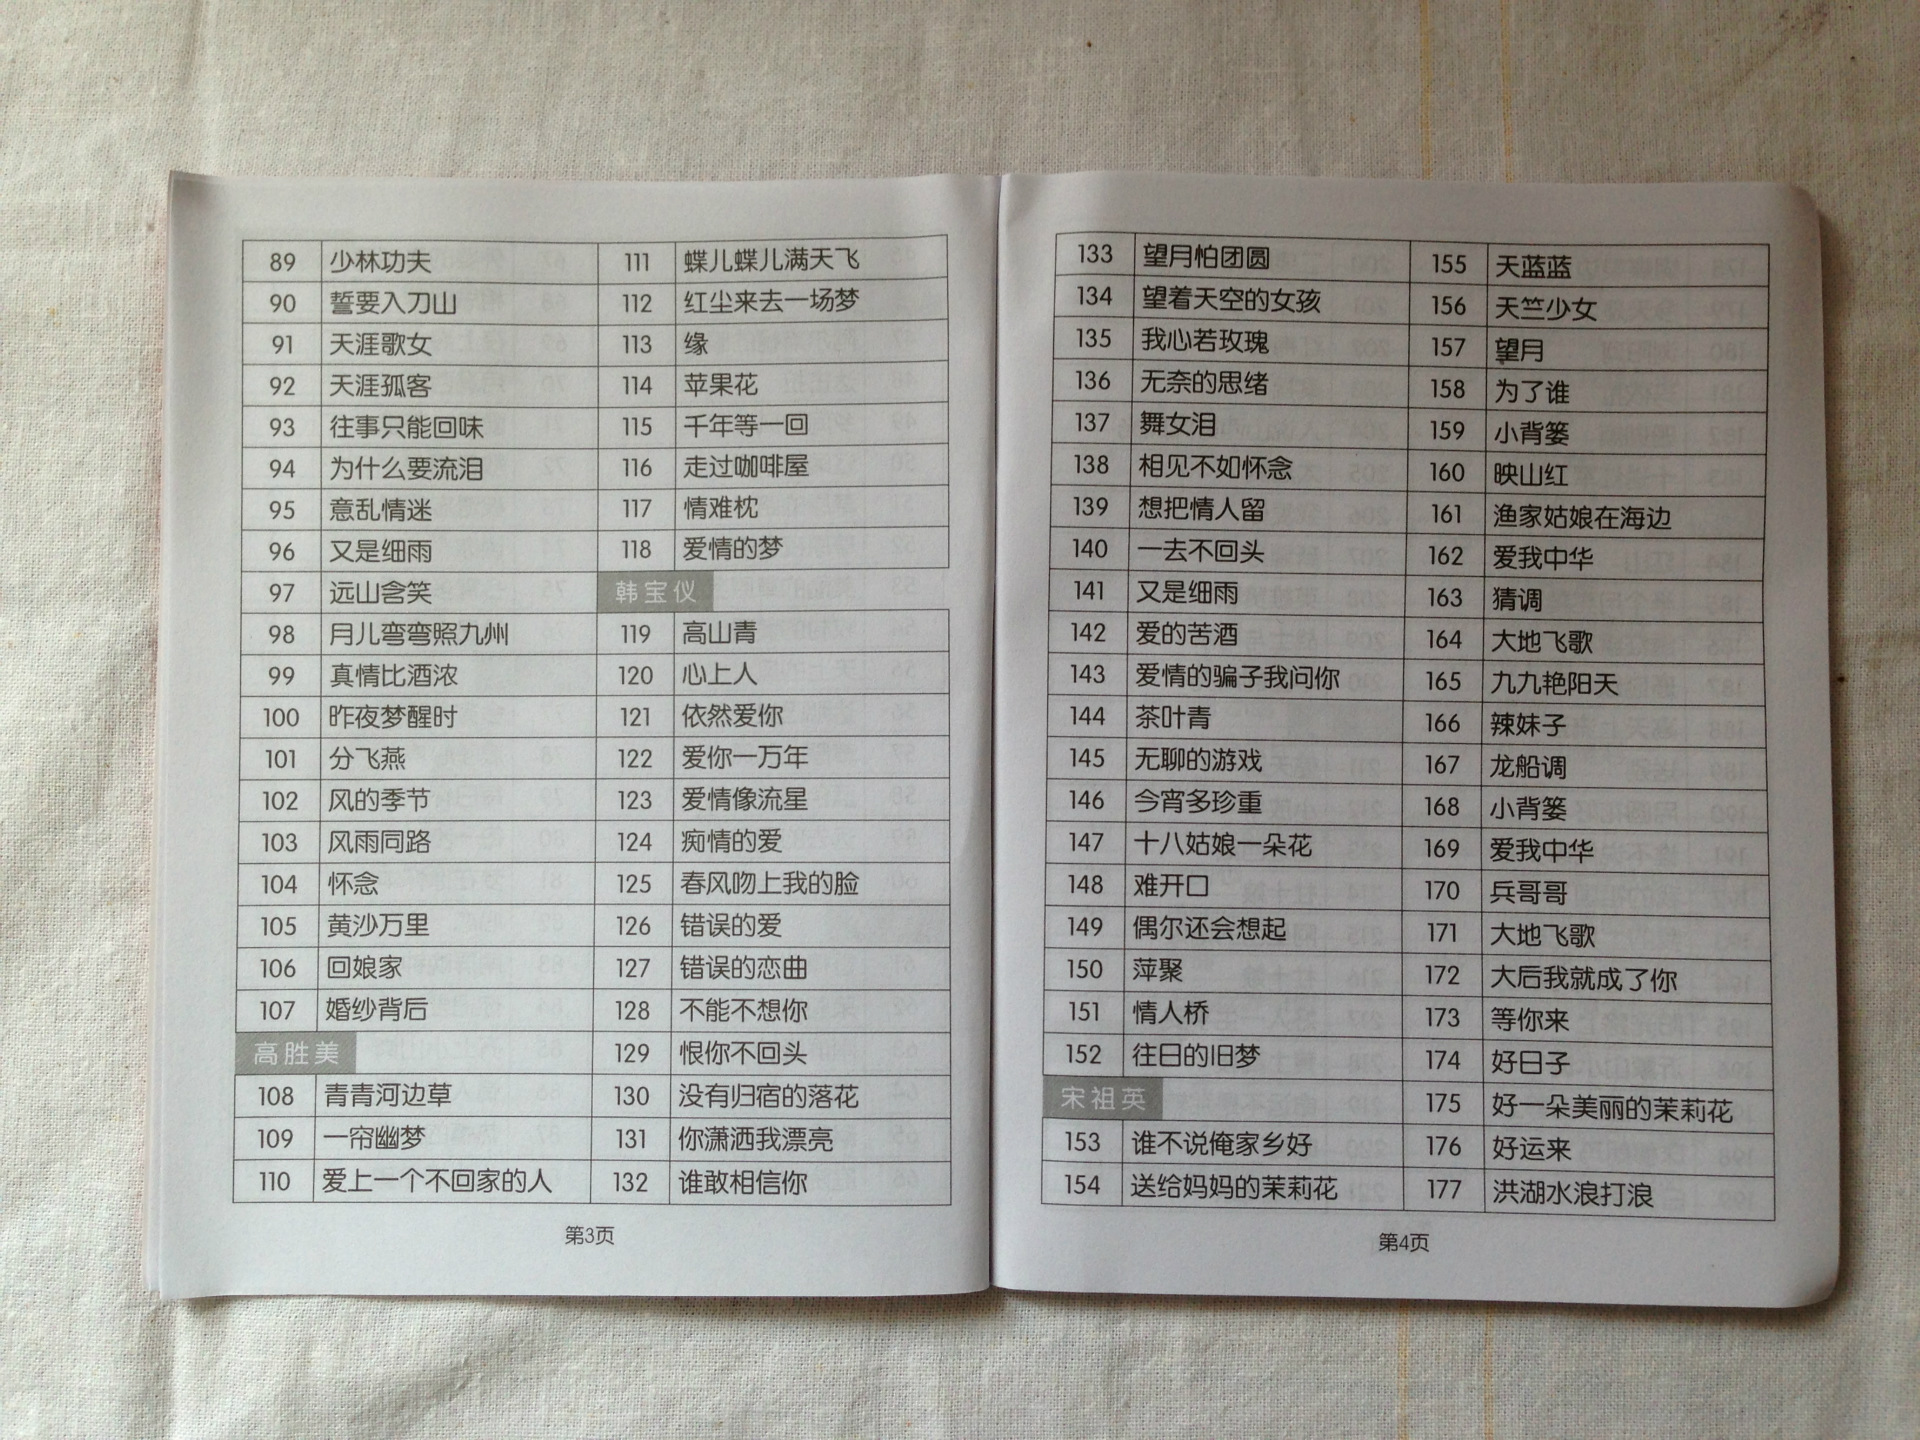 89 少林功夫
90 誓要入刀山
91 天涯歌女
92 天涯孤客
93 往事只能回味
94 为什么要流泪
95 意乱情迷
96 又是细雨
97 远山含笑
98 月儿弯弯照九州
99 真情比酒浓
100 昨夜梦醒时
101 分飞燕
102 风的季节
103 风雨同路
104 怀念
105 黄沙万里
106 回娘家
107 婚纱背后
高胜美
108 青青河边草
109 一帘幽梦
110 爱上一个不回家的人
111 蝶儿蝶儿满天飞
112 红尘来去一场梦
113 缘
114 苹果花
115 千年等一回
116 走过咖啡屋
117 情难枕
118 爱情的梦
韩宝仪
119 高山青
120 心上人
121 依然爱你
122 爱你一万年
123 爱情像流星
124 痴情的爱
125 春风吻上我的脸
126 错误的爱
127 错误的恋曲
128 不能不想你
129 恨你不回头
130 没有归宿的落花
131 你潇洒我漂亮
132 谁敢相信你
第3页
133 望月怕团圆
134 望着天空的女孩
135 我心若玫瑰
136 无奈的思绪
137 舞女泪
138 相见不如怀念
139 想把情人留
140 一去不回头
141 又是细雨
142 爱的苦酒
143 爱情的骗子我问你
144 茶叶青
145 无聊的游戏
146 今宵多珍重
147 十八姑娘一朵花
148 难开口
149 偶尔还会想起
150 萍聚
151 情人桥
152 往日的旧梦
宋祖英
153 谁不说俺家乡好
154 送给妈妈的茉莉花
155 天蓝蓝
156 天竺少女
157 望月
158 为了谁
159 小背篓
160 映山红
161 渔家姑娘在海边
162 爱我中华
163 猜调
164 大地飞歌
165 九九艳阳天
166 辣妹子
167 龙船调
168 小背篓
169 爱我中华
170 兵哥哥
171 大地飞歌
172 大后我就成了你
173 等你来
174 好日子
175 好一朵美丽的茉莉花
176 好运来
177 洪湖水浪打浪
第4页